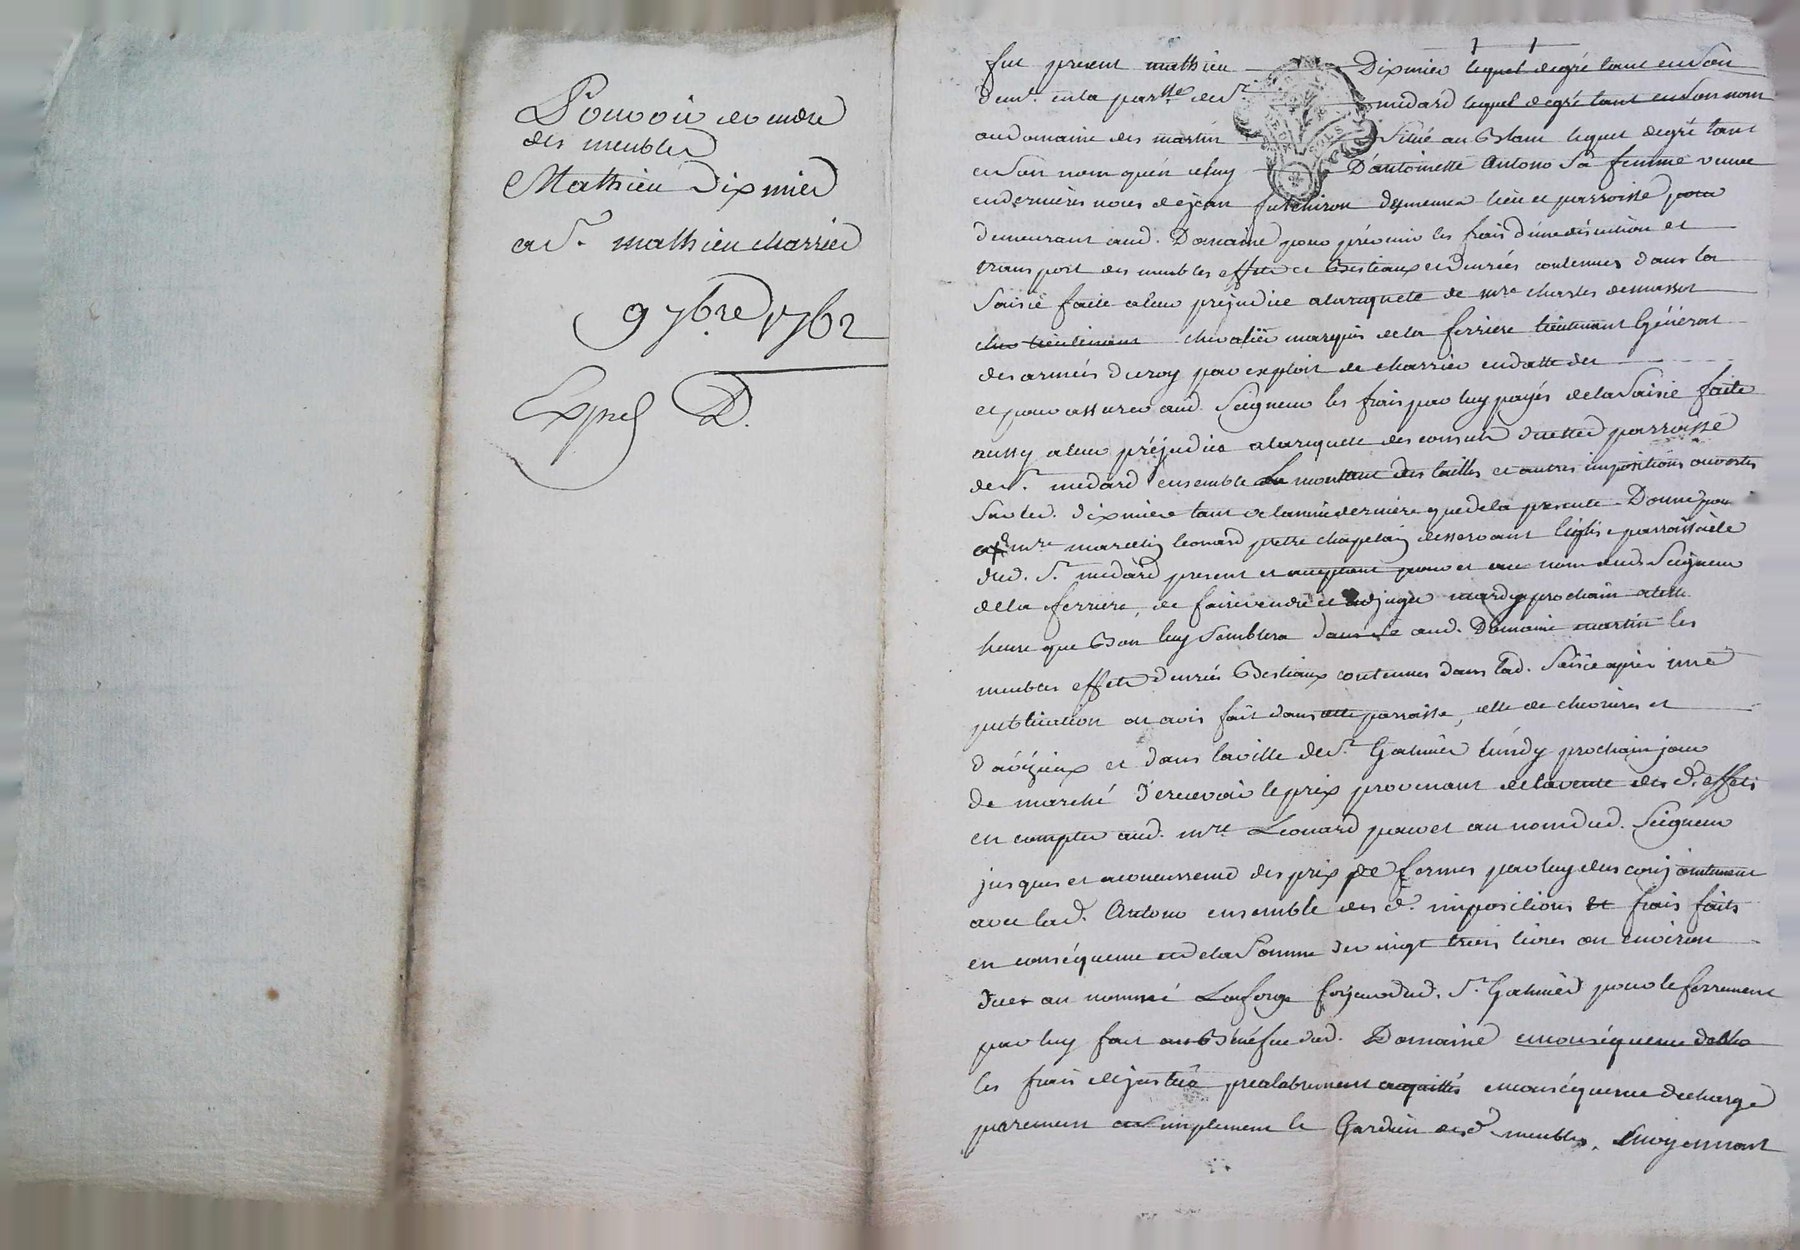 Pouvoir de vendre
des meubles
Mathieu Dixmier
a Sr. mathieu charrier
9 7bre 1762
Expd. D.
fut present mathieu Dixmier lequel degré tant en son
demt. en la parsse de St. medard lequel degré tant en son nom
au domaine des martin situé au lequel degré tant
en son nom qu'en celuy D'antoinette sa femme veuve
en dernieres noces de jean desmemes lieu et parroisse pour
demeurant aud. Domaine pour prévenir les frais d'une et
transport des meubles effets et Bestiaux et denrées contenues dans la
saisie faite a leur prejudice a la requete de mre charles demasset
lieutenant chevalier marquis de la ferriere lieutenant Général
des armées du roy par exploit de charrier en datte du
et pour assurer aud. Seigneur les frais par luy payés de la saisie faite
aussy a leur préjudice a la requete des consuls parroisse
de St. medard ensemble le montant des tailles et autres impositions
sur led. dixmier tant de lannée derniere que de la presente Donne pouv
a mre marcelin leonard pretre chapelain desservant léglise parroissiale
dud. St. medard present et acceptant pour et au nom dud. Seigneur
de la ferriere, de faire vendre et adjuger mardy prochain a telle
heure que Bon luy semblera aud. Domaine martin les
meubles effets denrées Bestiaux contenues dans lad. saisie apres une
publication ou avis fait dans cette parroisse, celle de chevrieres et
d'aveizieux et dans la ville de St. Galmier lundy prochain jour
de marché D'recevoir le prix provenant de la vente des d. effets
en compter aud. mre Leonard pour et au nom dud. Seigneur
jusques et a concurrence des prix de fermes par luy dus conjointement
avec lad. ensemble des d. impositions et frais faits
en conséquence et de la somme de vingt trois livres ou environ
due au nommé Laforge forgeur dud. St. Galmier pour le ferrement
par luy fait au Bénéfice dud. Domaine en conséquence
les frais de justice prealablement acquittés en conséquence decharge
purement et simplement le Gardien des d. meubles. moyennant